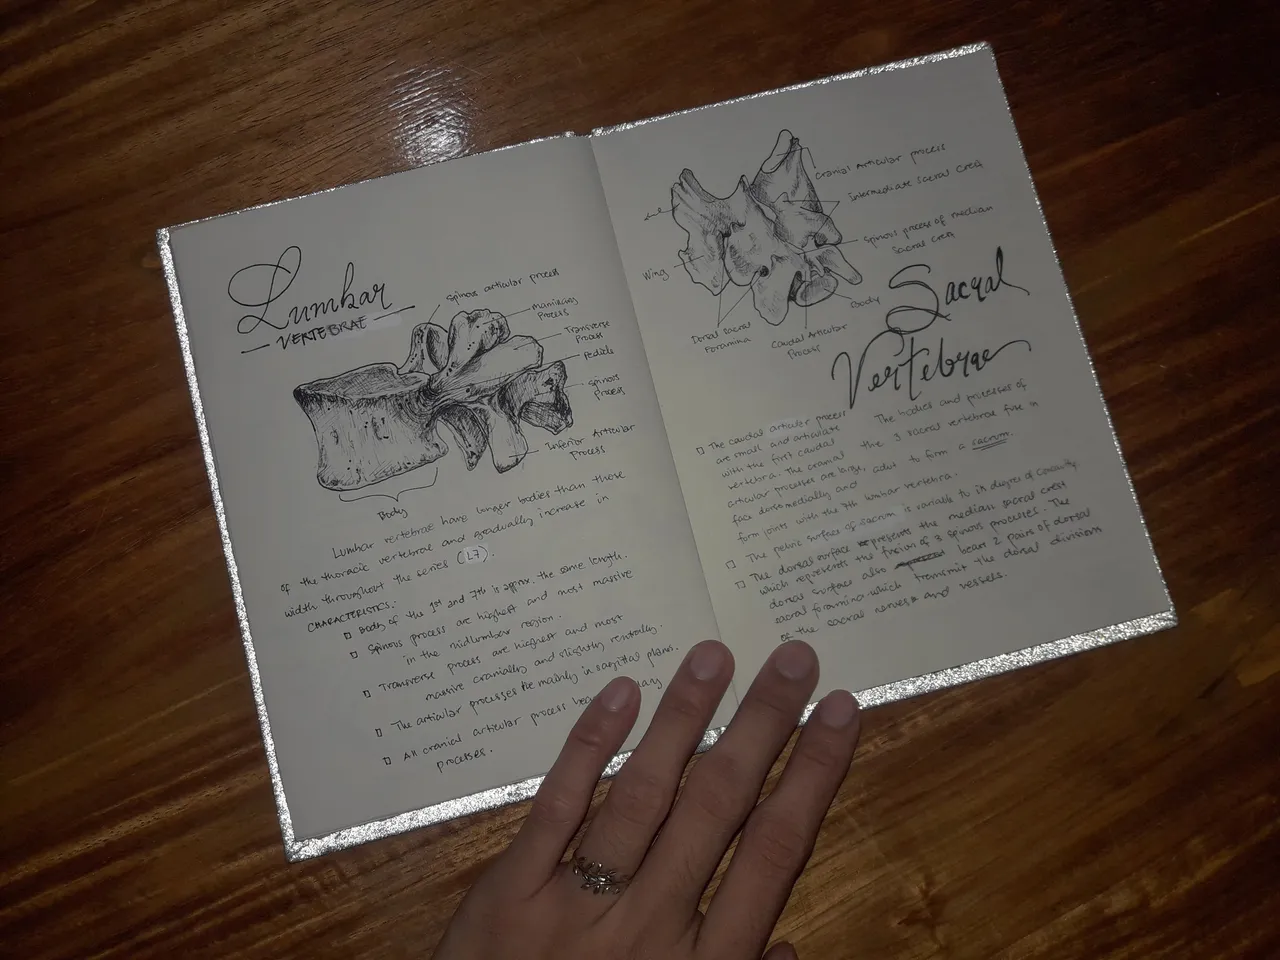 Lumbar
VERTEBRAE
Spinous articular process
Process
Transverse
Process
Pedicle
Spinous
Process
Inferior Articular
Process
Body
Lumbar vertebrae have longer bodies than those
of the thoracic vertebrae and gradually increase in
width throughout the series (L7).
CHARACTERISTICS.
Body of the 1st and 7th is approx. the same length.
Spinous process are highest and most massive
in the midlumbar region.
Transverse process are highest and most
massive cranially and slightly ventrally.
The articular processes lie mainly in sagittal plane.
All cranial articular process
processes.
Cranial Articular process
Intermediate sacral crest
Spinous process of median
sacral crest
Wing
Dorsal Sacral
Foramina
Caudal Articular
Process
Body
Sacral
Vertebrae
The bodies and processes of
the 3 sacral vertebrae fuse in
adult to form a sacrum.
The caudal articular process
are small and articulate
with the first caudal
vertebra. The cranial
articular processes are large,
face dorsomedially and
form joints with the 7th lumbar vertebra.
The pelvic surface of sacrum is variable to its degree of concavity
The dorsal surface represents the median sacral crest
which represents the fusion of 3 spinous processes. The
dorsal surface also bears 2 pairs of dorsal
sacral foramina which transmit the dorsal divisions
of the sacral nerves and vessels.